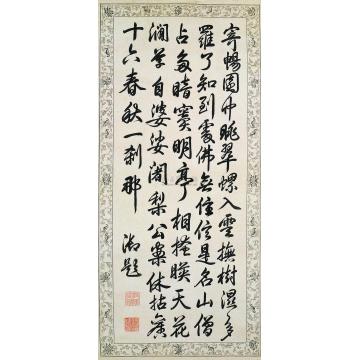 寄暢園中眺翠螺入雲撫樹濕多
羅了知到處佛無住信是名山僧
占多暗竇明亭相掩映天花
澗草自婆娑闍梨公案休拈舉
十六春秋一剎那 御題